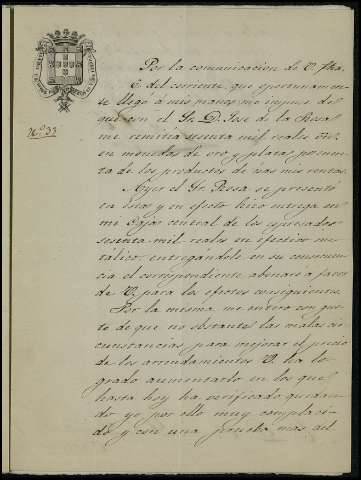 Nº 33
Por la comunicacion de V. fha
6. del corriente, que oportunamen-
te llegó á mis manos me impuse de
que con el Sr. D. José de la Rosa
me remitia sesenta mil reales
en monedas de oro y plata
de los productos de mis rentas.
Ayer el Sr. Rosa se presentó
en esta y en efecto hizo entrega en
mi Caja central de los espresados
sesenta mil reales en efectivo me-
tálico, entregándole en su consecuen-
cia el correspondiente abonaré á favor
de V. para los efectos consiguientes.
Por la misma me entero con gus-
to de que no obstante las malas cir-
cunstancias para mejorar el precio
de los arrendamientos V. ha lo-
grado aumentarlo en los que
hasta hoy ha verificado quedan-
do yo por ello muy complaci-
do y con una prueba mas del